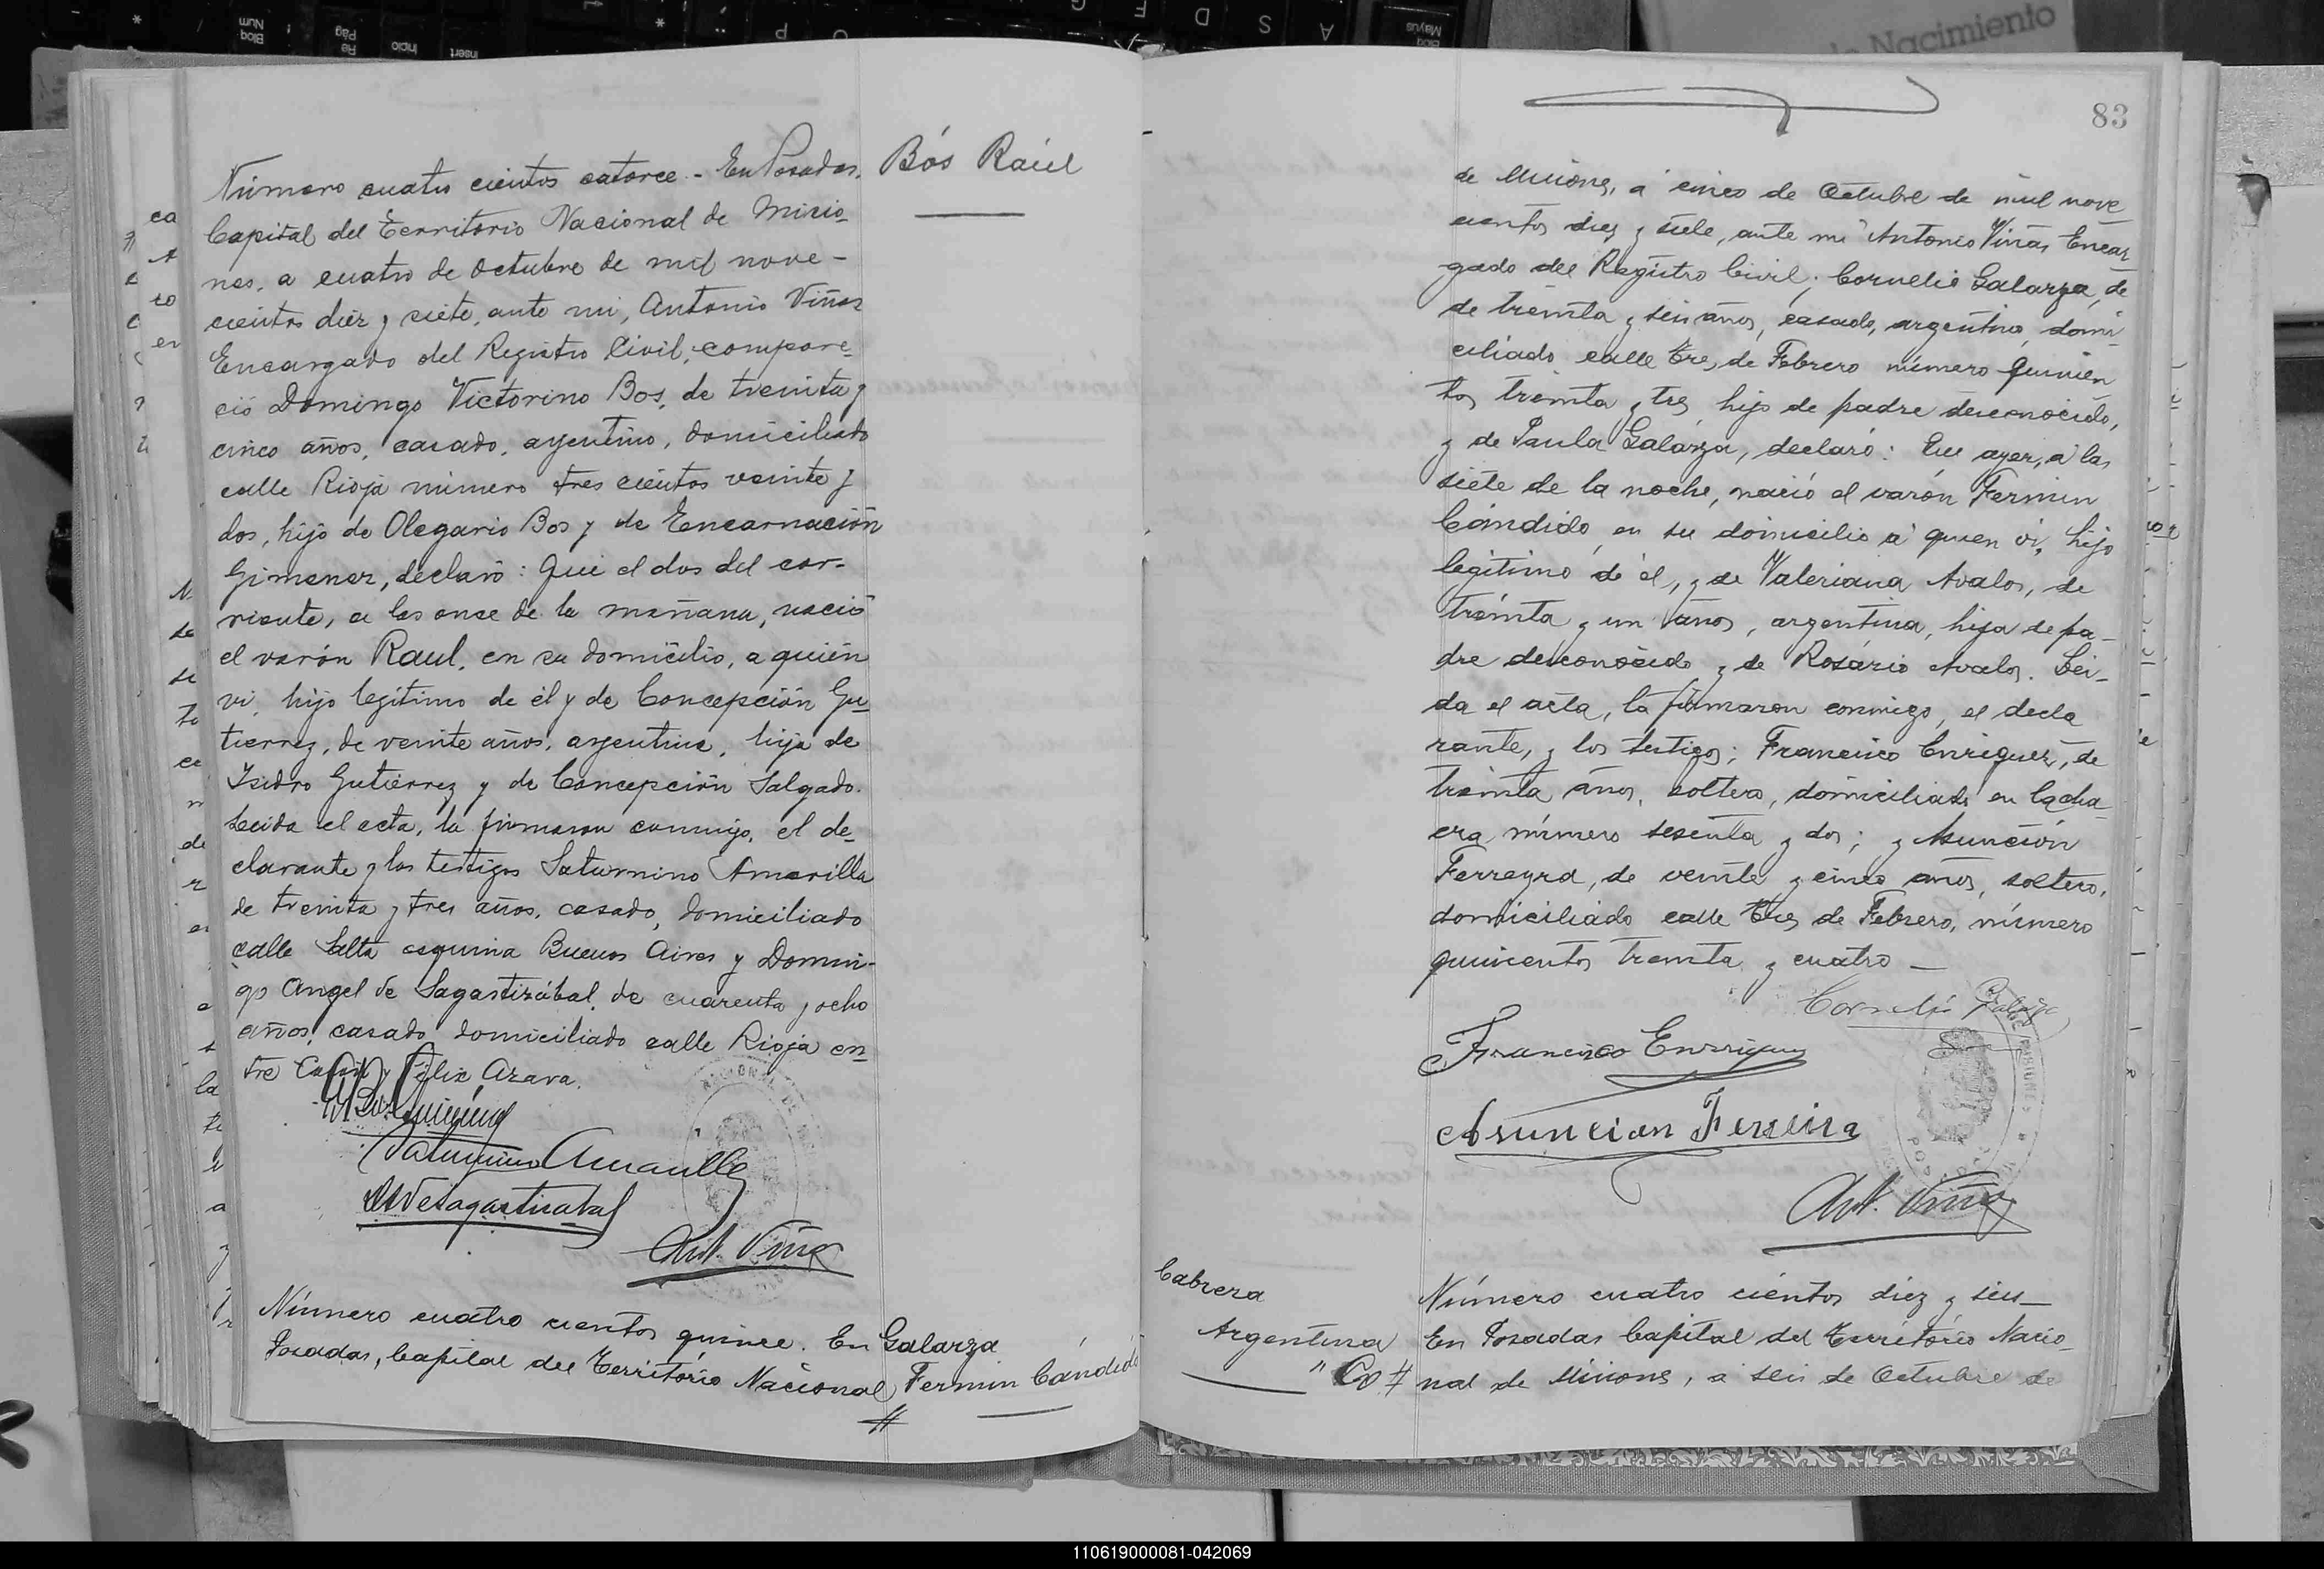 Número cuatro cientos catorce - En Posadas,
Capital del Territorio Nacional de Misio-
nes, a cuatro de Octubre de mil nove-
cientos diez y siete, ante mi, Antonio Viñas
Encargado del Registro Civil, compare-
ció Domingo Victorino Bos, de treinta y
cinco años, casado, argentino, domiciliado
calle Rioja número tres cientos veinte y
dos, hijo de Olegario Bos y de Encarnación
Gimenez, declaró: Que el dos del cor-
riente, a las once de la mañana, nació
el varón Raul, en su domicilio, a quién
vi, hijo legítimo de él y de Concepción Gu-
tierrez, de veinte años, argentina, hija de
Isidro Gutiérrez y de Concepción Salgado.
Leida el acta, la firmaron conmigo, el de-
clarante y los testigos Saturnino Amarilla
de treinta y tres años, casado, domiciliado
calle Salta esquina Buenos Aires y Domin-
go Angel de Sagastizábal, de cuarenta y ocho
años, casado, domiciliado calle Rioja en-
tre Colón y Félix Azara.
Saturnino Amarilla
Ant. Viñas
Bós Raúl
Número cuatro cientos quince. En
Posadas, Capital del Territorio Nacional
Galarza
Fermin Cándido
#
83
de Misiones, á cinco de Octubre de mil nove
cientos diez y siete, ante mi Antonio Viñas Encar
gado del Registro Civil; Cornelio Galarza, de
de treinta y seis años, casado, argentino, domi-
ciliado calle Tres de Febrero número quinien
tos treinta y tres, hijo de padre desconocido,
y de Paula Galarza, declaró: Que ayer, á las
siete de la noche, nació el varón Fermin
Cándido, en su domicilio á quien vi, hijo
legítimo de él, y de Valeriana Avalos, de
treinta y un años, argentina, hija de pa-
dre desconocido y de Rosario Avalos. Lei-
da el acta, la firmaron conmigo, el decla
rante, y los testigos; Francisco Enriquez, de
treinta años, soltero, domiciliado en la cha
cra número sesenta y dos; y Asunción
Ferreyra, de veinte y cinco años, soltero,
domiciliado calle Tres de Febrero, número
quinientos treinta y cuatro —
Cornelio Galarza
Francisco Enrriquez
Asuncion Ferreira
Ant. Viñas
Cabrera
Argentina
" Co #
Número cuatro cientos diez y seis —
En Posadas Capital del Territorio Nacio-
nal de Misiones, á seis de Octubre de
110619000081-042069